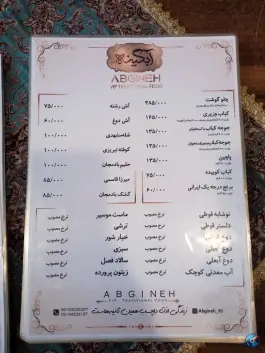 آبگینه
ABGINEH
VIP TRADITIONAL FOOD
چلو گوشت ۳۸۵/۰۰۰
کباب وزیری ۱۶۵/۰۰۰
جوجه کباب ۱۳۵/۰۰۰
جوجه کباب ۱۳۵/۰۰۰
۱۳۵/۰۰۰
کباب کوبیده ۷۵/۰۰۰
برنج درجه یک ایرانی ۶۰/۰۰۰
آش رشته ۷۵/۰۰۰
آش دوغ ۶۰/۰۰۰
۱۰۰/۰۰۰
کوفته تبریزی ۱۰۰/۰۰۰
حلیم بادمجان ۱۰۰/۰۰۰
میرزا قاسمی ۸۵/۰۰۰
کشک بادمجان ۸۵/۰۰۰
نوشابه قوطی نرخ مصوب
دلستر قوطی نرخ مصوب
نرخ مصوب
دوغ نرخ مصوب
دوغ آبعلی نرخ مصوب
آب معدنی کوچک نرخ مصوب
ماست موسیر نرخ مصوب
ترشی نرخ مصوب
خیار شور نرخ مصوب
سبزی نرخ مصوب
سالاد فصل نرخ مصوب
زیتون پرورده نرخ مصوب
ABGINEH
VIP TRADITIONAL FOOD